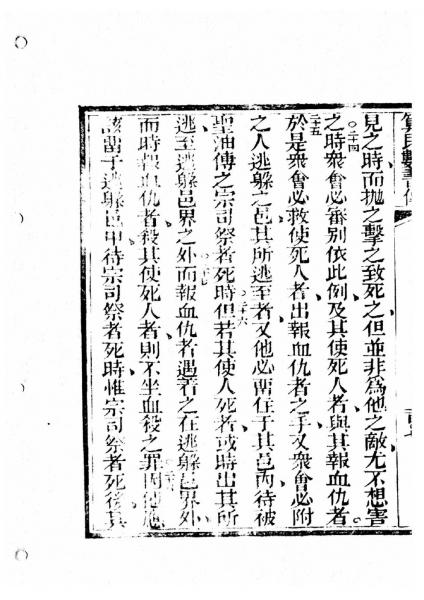 民數書傳
見之時而拋之擊之致死之但並非為他之敵尤不想害
○二十四
之時衆會必審別依此例及其使死人者與其報血仇者
二十五
於是衆會必救使死人者出報血仇者之手又衆會必附
之人逃躲之邑其所逃至者又他必畱住于其邑內待被
○二十六
聖油傳之宗司祭者死時但若其使人死者或時出其所
○二十七
逃至逃躲邑界之外而報血仇者遇著之在逃躲邑界外
而時報血仇者殺其使死人者則不坐血殺之罪因他應
該畱于逃躲邑中待宗司祭者死時惟宗司祭者死後其